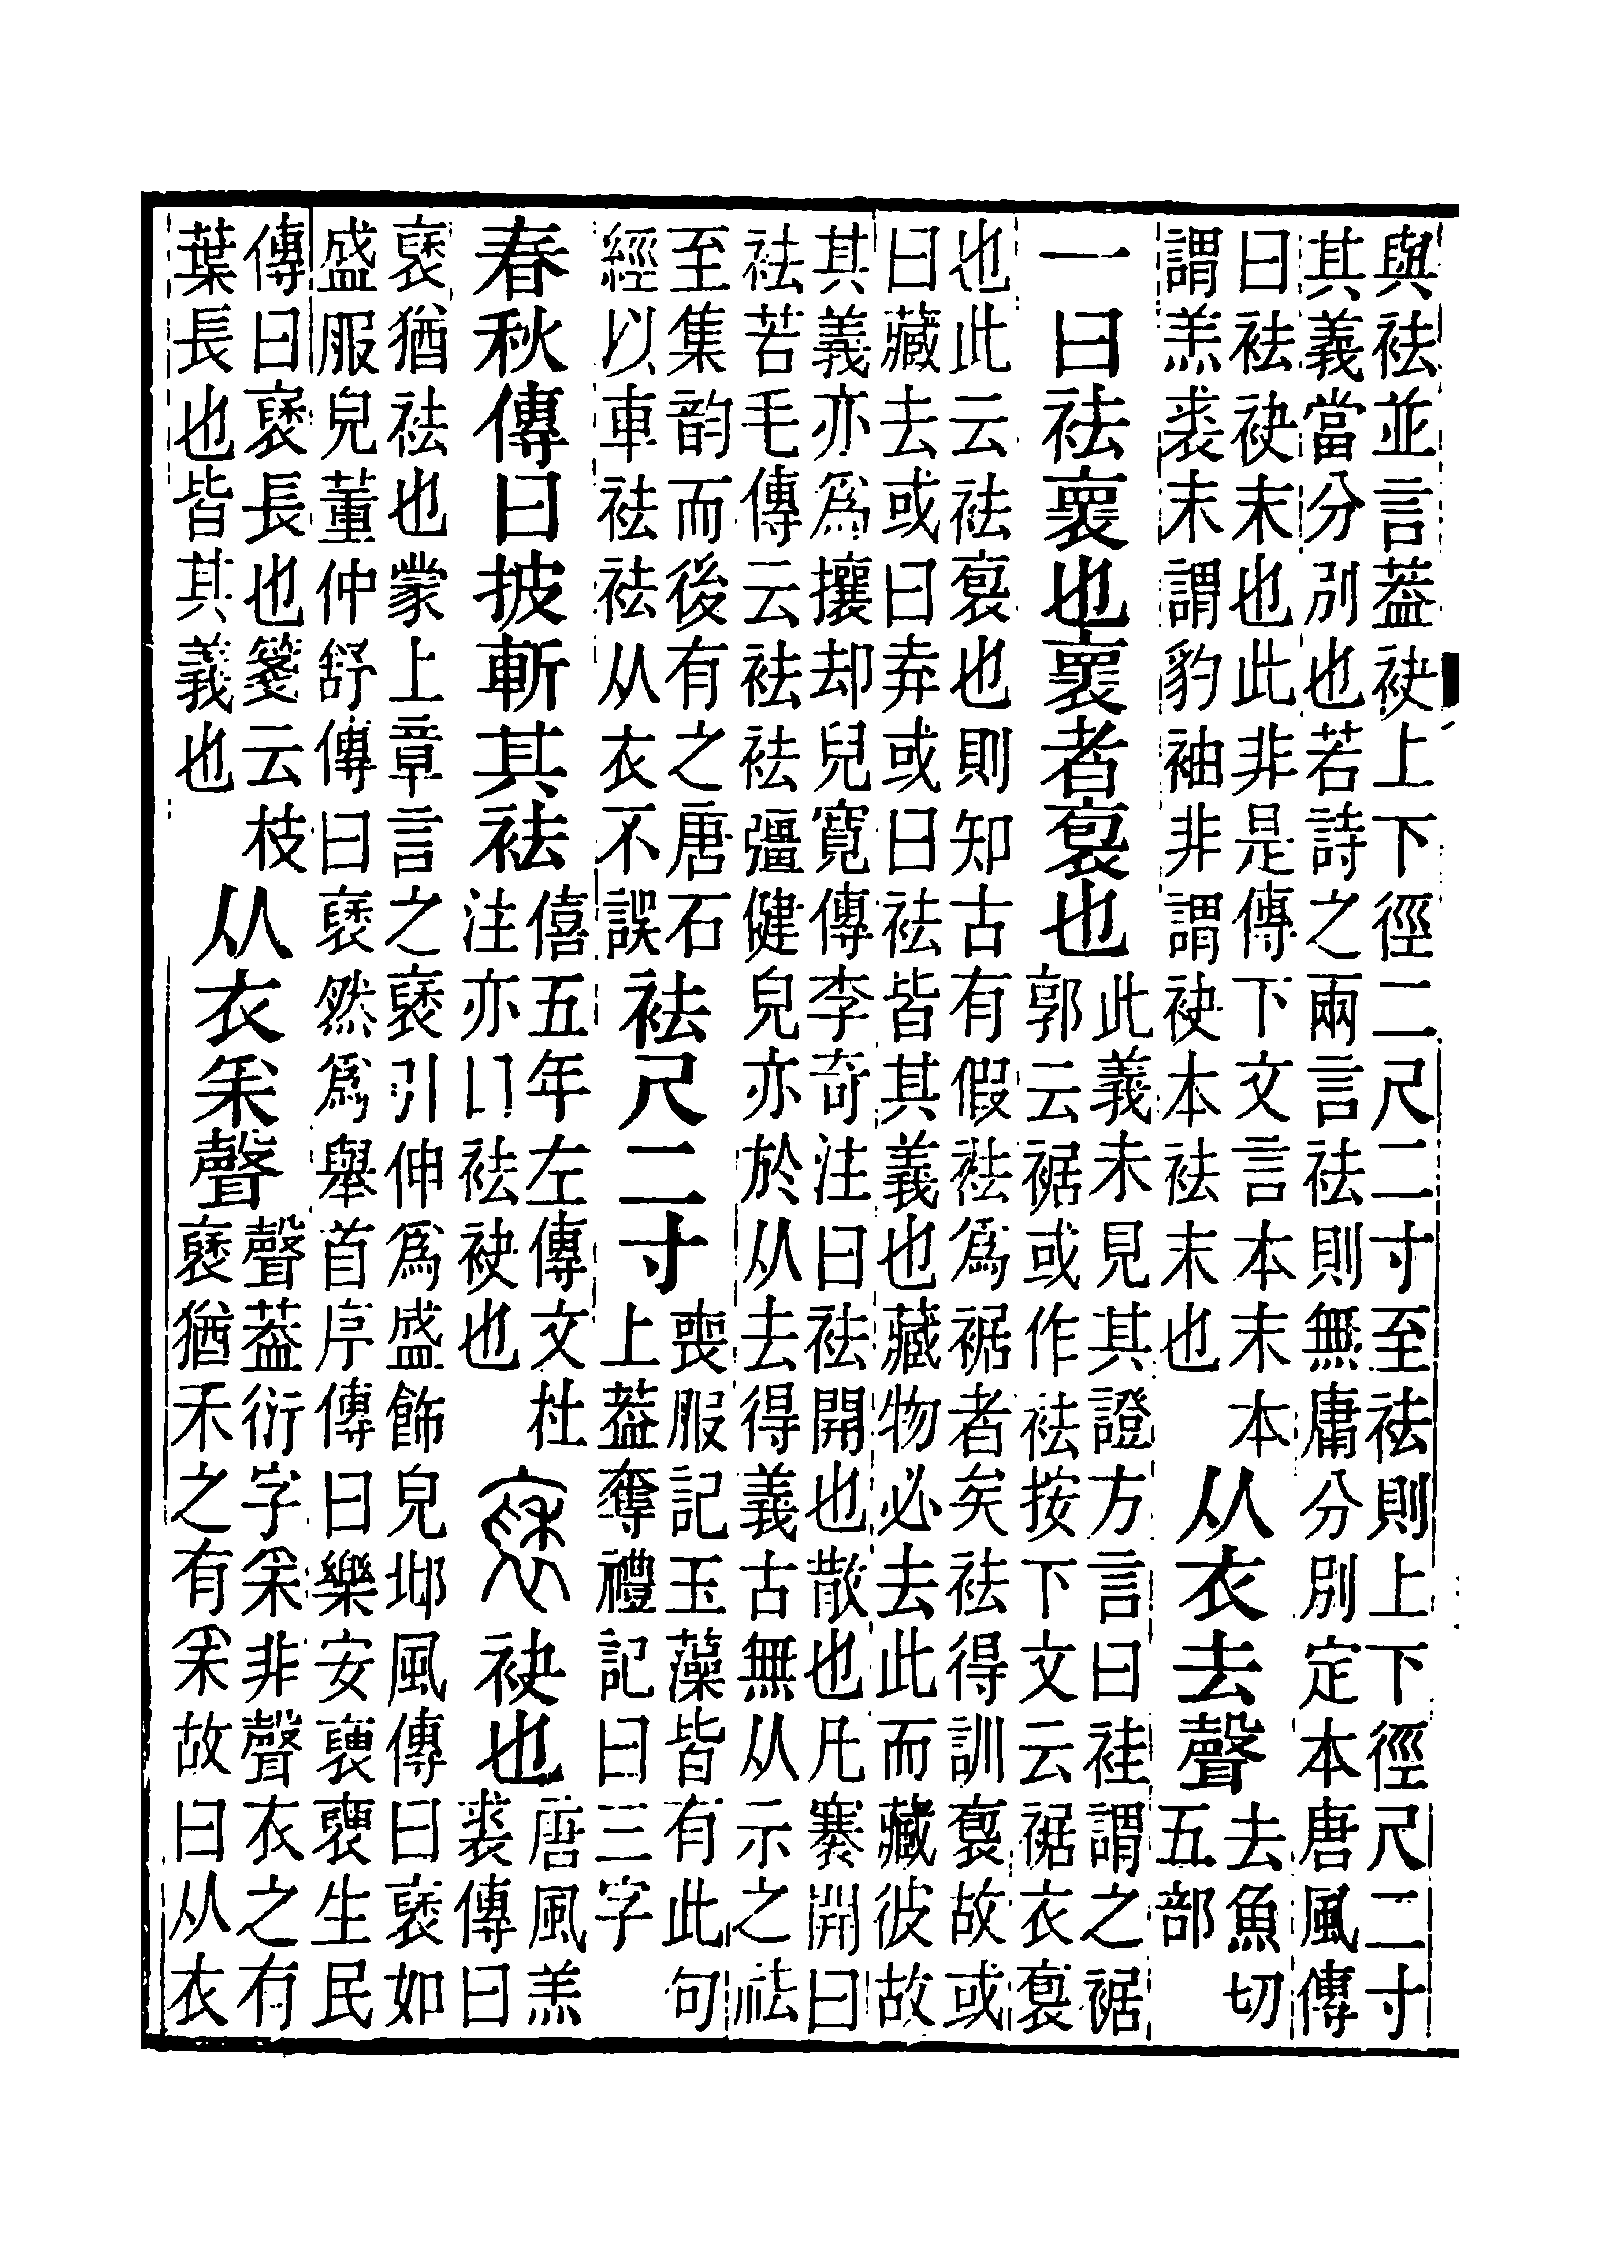 與袪並言葢袂上下徑二尺二寸至袪則上下徑尺二寸
其義當分別也若詩之兩言袪則無庸分別定本唐風傳
曰袪袂末也此非是傳下文言本末本
謂羔裘末謂豹袖非謂袂本袪末也
从衣去聲
去魚切
五部
一曰袪褱也褱者袌也
此義未見其證方言曰袿謂之裾
郭云裾或作袪按下文云裾衣袌
也此云袪袌也則知古有假袪爲裾者矣袪得訓袌故或
曰藏去或曰弆或曰袪皆其義也藏物必去此而藏彼故
其義亦爲攘却兒寬傳李奇注曰袪開也散也凡褰開曰
袪若毛傳云袪袪彊健皃亦於从去得義古無从示之祛
至集韵而後有之唐石
經以車袪袪从衣不誤
袪尺二寸
喪服記玉藻皆有此句
上葢奪禮記曰三字
春秋傳曰披斬其袪
僖五年左傳文杜
注亦㠯袪袂也
褎
袂也
唐風羔
裘傳曰
褎猶袪也蒙上章言之褎引伸爲盛飾皃邶風傳曰褎如
盛服皃董仲舒傳曰褎然爲舉首序傳曰樂安褏褏生民
傳曰褎長也箋云枝
葉長也皆其義也
从衣𥝩聲
聲葢衍字𥝩非聲衣之有
褎猶禾之有𥝩故曰从衣